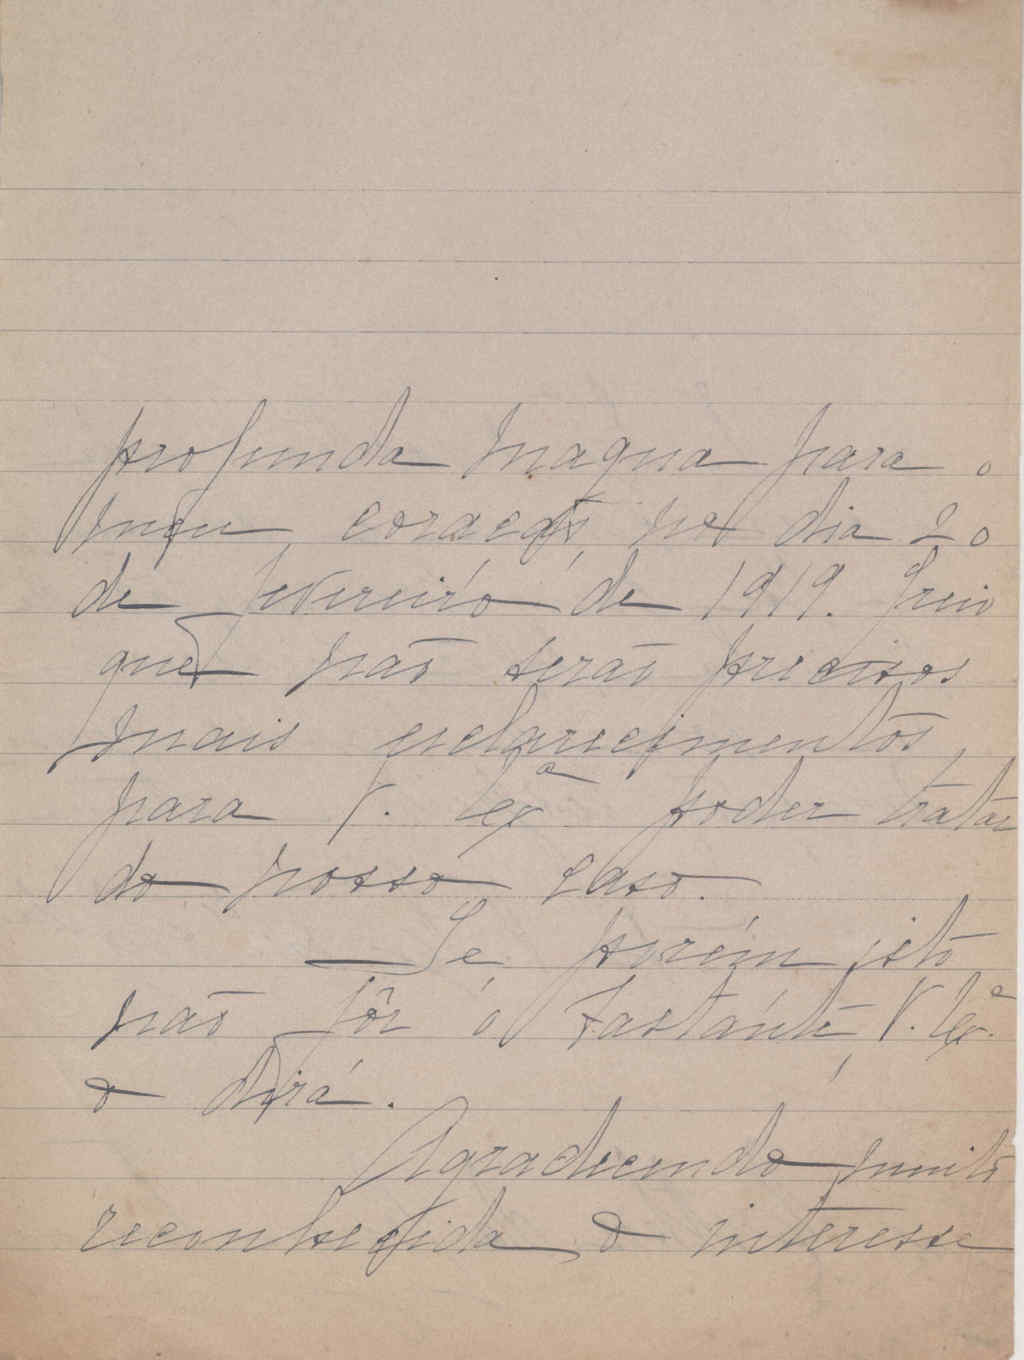 profunda magua para o
meu coração, no dia 20
de fevereiro de 1919. Creio
que não serão precisos
mais esclarecimentos,
para V. Exª poder tratar
do nosso caso.
— Se porém isto
não fôr o bastante, V. Exª.
o dirá.
Agradecendo muito
reconhecida o interesse